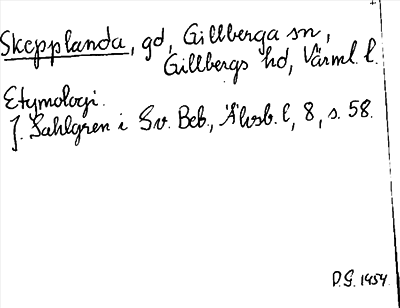 Skepplanda, gd, Gillberga sn,
Gillbergs hd, Värml. l.
Etymologi.
J. Sahlgren i Sv. Beb., Älvsb. l, 8, s. 58.
D.G. 1454